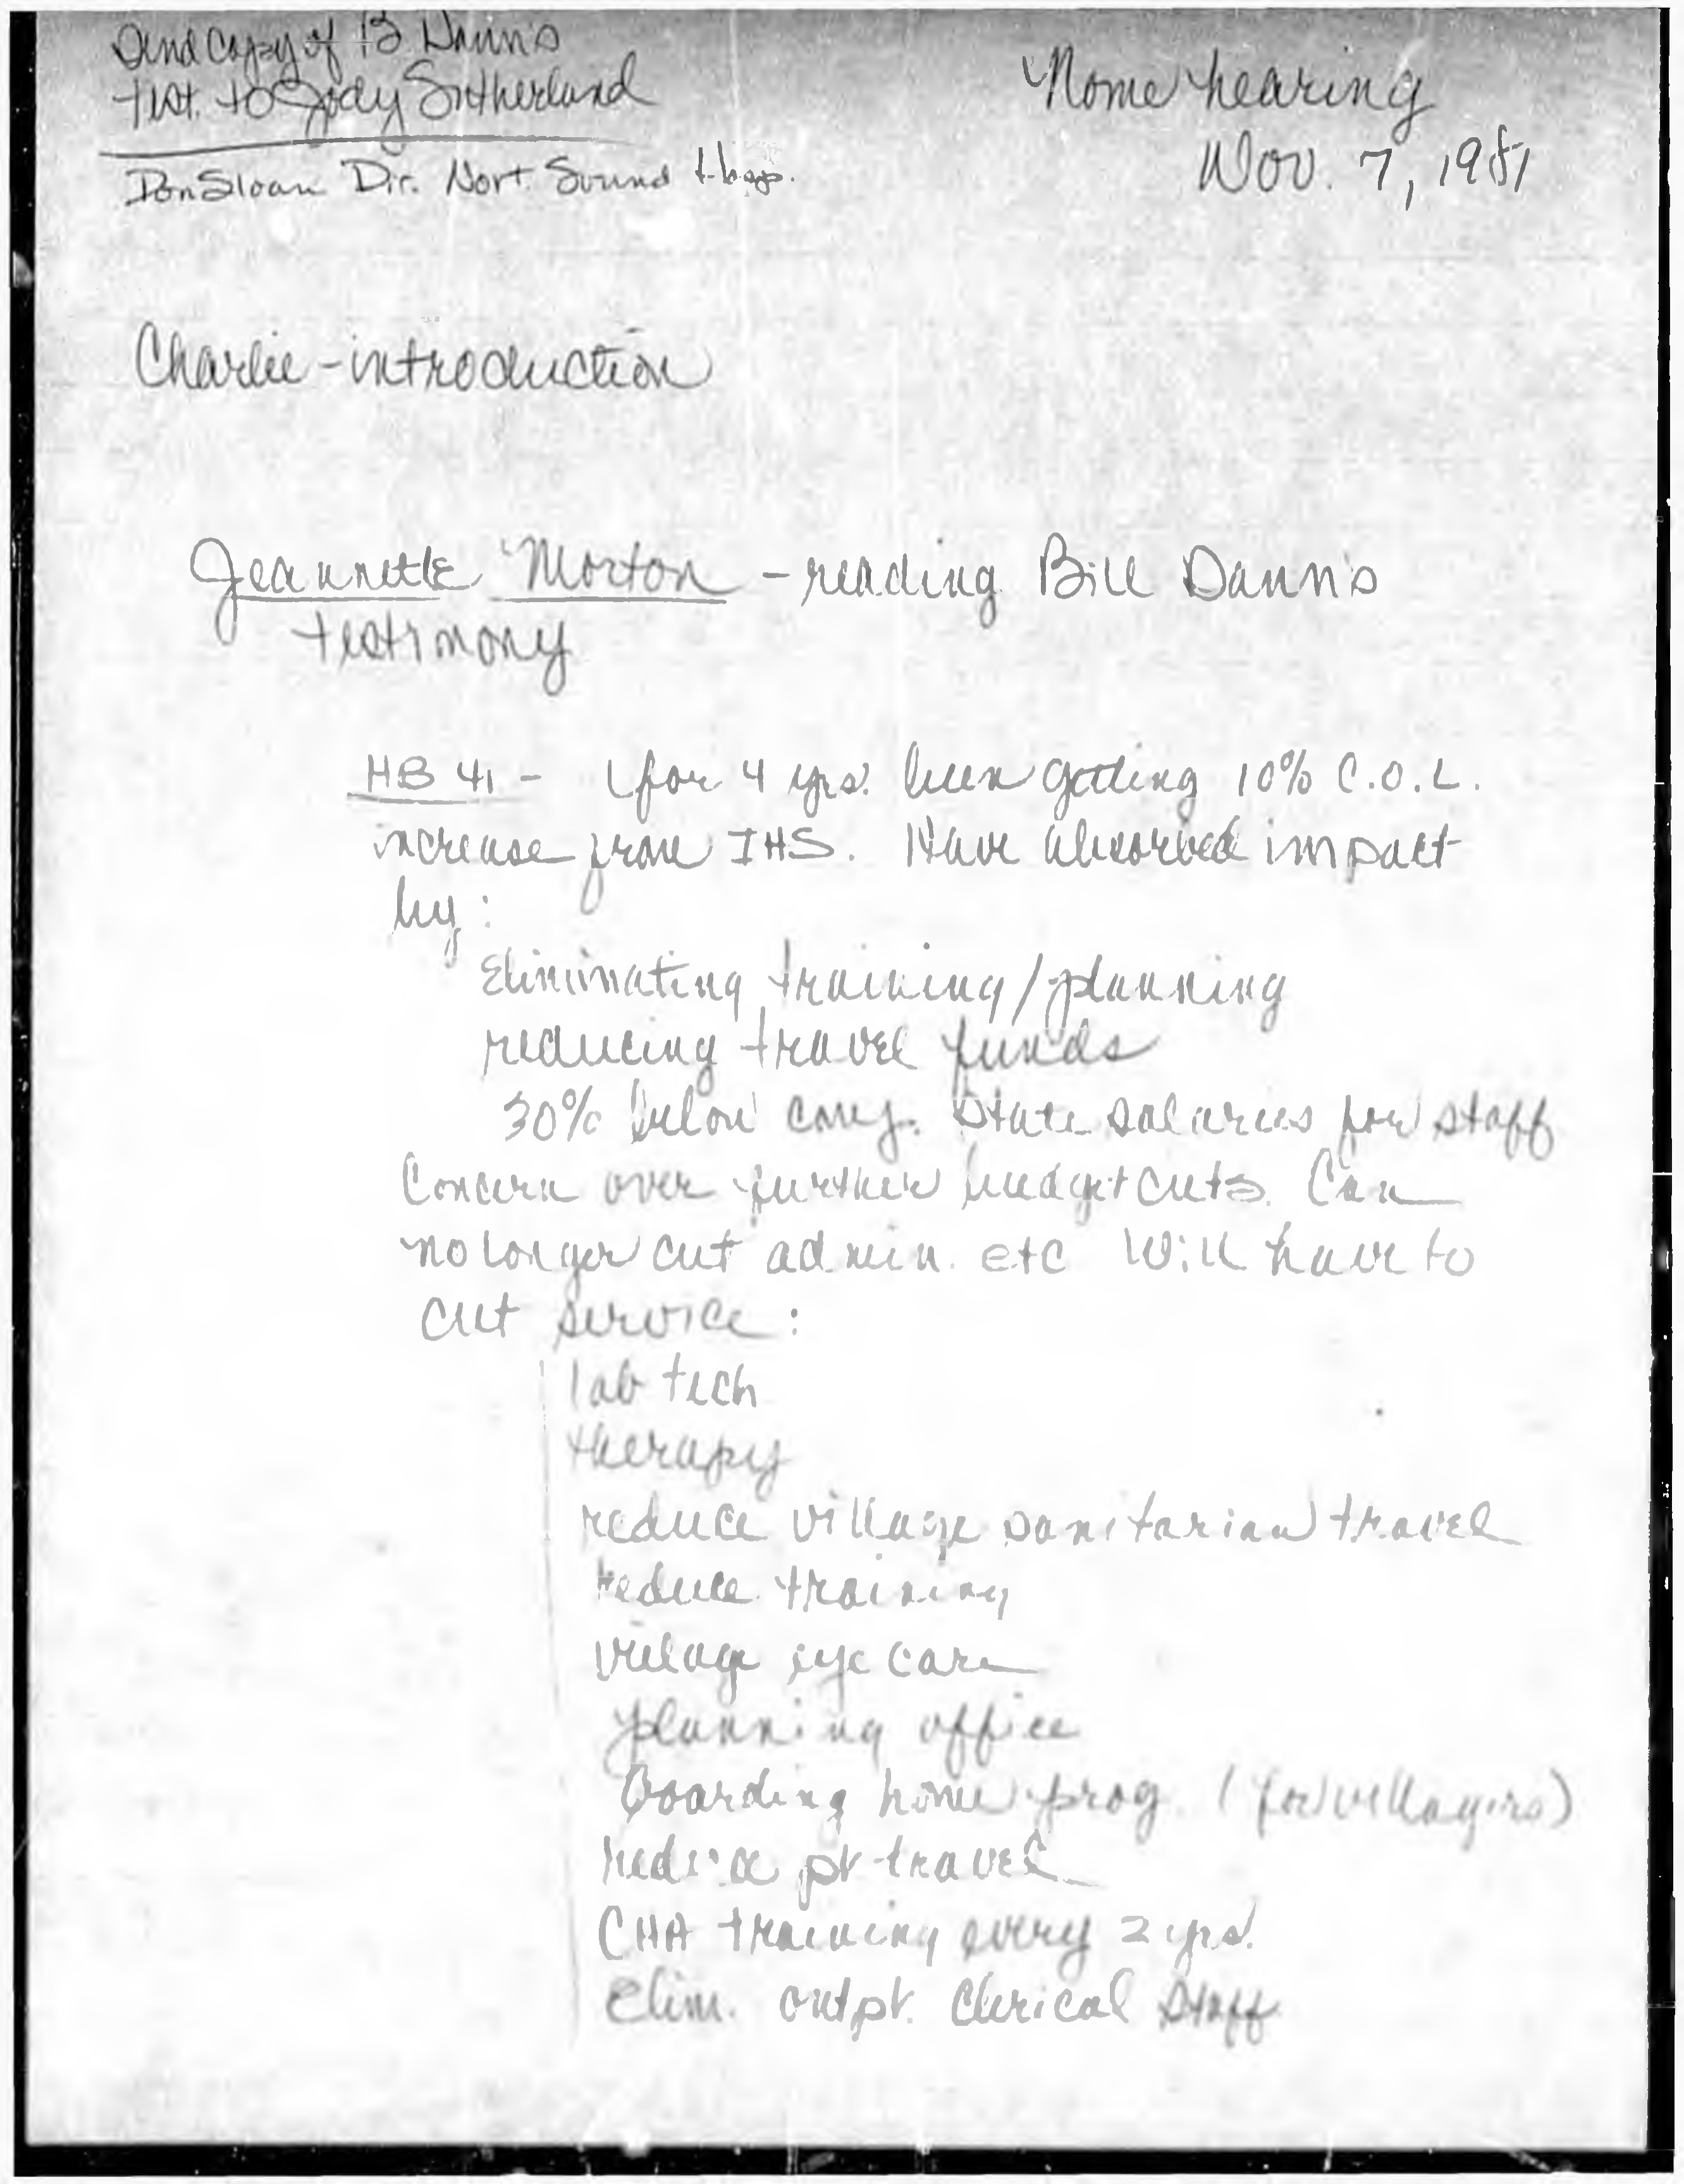 Send copy of B Dann's
test. to Jody Sutherland
Don Sloan Dir. Nort. Sound
Nome hearing
Nov. 7, 1981
Charlie - introduction
Jeannette Morton - reading Bill Dann's
testimony
HB 41 - for 4 yrs. been getting 10% C.O.L.
increase from IHS. Have absorbed impact
by:
Eliminating training/planning
reducing travel funds
30% below State salaries for staff
Concern over further budget cuts. Can
no longer cut admin. etc Will have to
cut service:
lab tech
therapy
reduce village sanitarian travel
reduce training
village eye care
planning office
Boarding home prog. (for villagers)
reduce pt travel
CHA training every 2 yrs.
Elim. outpt. clerical staff